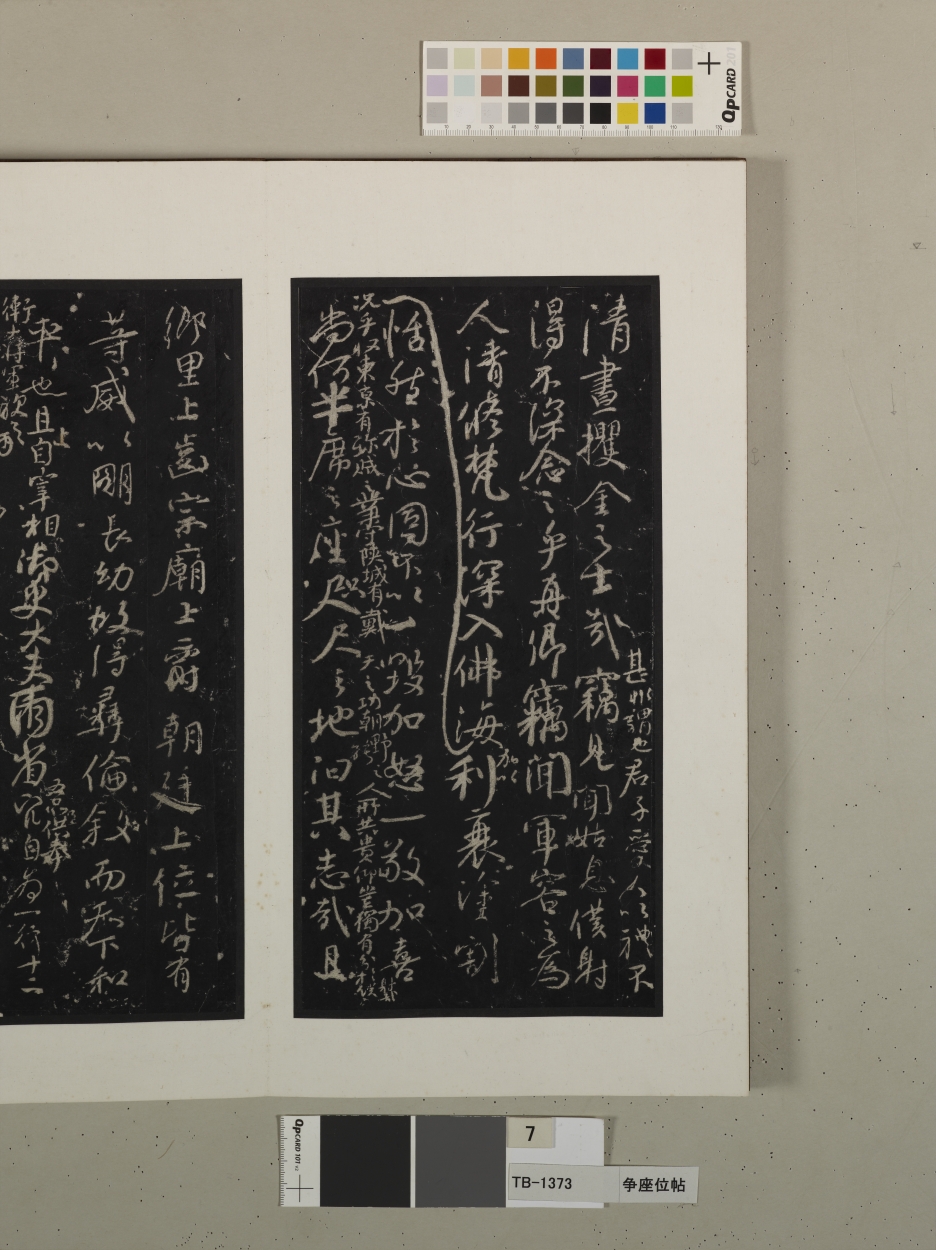 甚非謂也君子愛人以禮不
清晝攫金之士哉竊見聞姑息僕射
得不深念之乎真卿竊聞軍容之為
人清修梵行深入佛海加以利衰塗割
恬然於心固不以一毀加怒一敬加喜
況乎收東京有殄賊之業守陝城有戴天之功朝野之人所共貴仰豈獨有分於僕射
尚何半席之座咫尺之地汨其志哉且
鄉里上齒宗廟上爵朝廷上位皆有
等威以明長幼故得彝倫敘而天下和
平也且上自宰相御史大夫兩省五品供奉官自為一行十二
衛大將軍次之
QPCARD 201
QPCARD 101
7
TB-1373
争座位帖